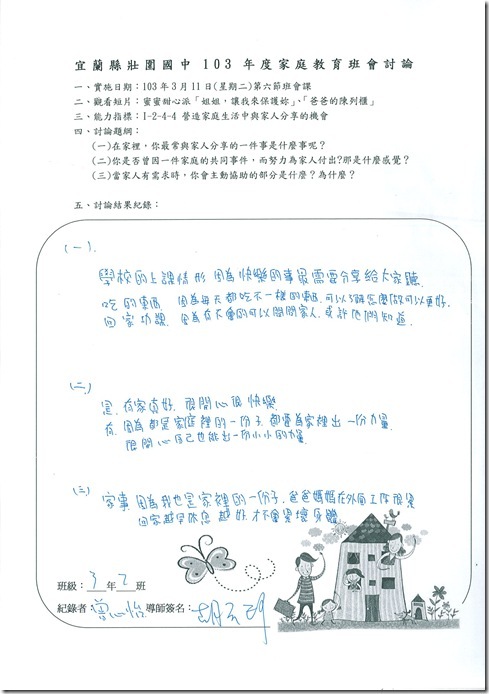 宜蘭縣壯圍國中 103 年度家庭教育班會討論
一、實施日期：103 年 3 月 11 日(星期二)第六節班會課
二、觀看短片：蜜蜜甜心派「姐姐，讓我來保護妳」、「爸爸的陳列櫃」
三、能力指標：1-2-4-4 營造家庭生活中與家人分享的機會
四、討論題綱：
(一)在家裡，你最常與家人分享的一件事是什麼事呢？
(二)你是否曾因一件家庭的共同事件，而努力為家人付出?那是什麼感覺？
(三)當家人有需求時，你會主動協助的部分是什麼？為什麼？
五、討論結果紀錄：
(一)、
學校的上課情形 因為快樂的事最需要分享給大家聽.
吃的東西 因為每天都吃不一樣的東西,可以了解怎麼做可以更好.
回家功課 因為有不會的可以問問家人,或許他們知道.
(二)、
是 有家真好. 很開心很快樂
有 因為都是家庭裡的一份子.都要為家裡出一份力量.
很開心自己也能出一份小小的力量.
(三)、
家事 因為我也是家裡的一份子.爸爸媽媽在外面工作很累
回家越早休息 越好.才不會累壞身體
班級：3 年 2 班
紀錄者 曾心怡 導師簽名：胡